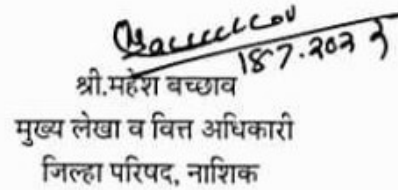 18.7.202३
श्री.महेश बच्छाव
मुख्य लेखा व वित्त अधिकारी
जिल्हा परिषद, नाशिक